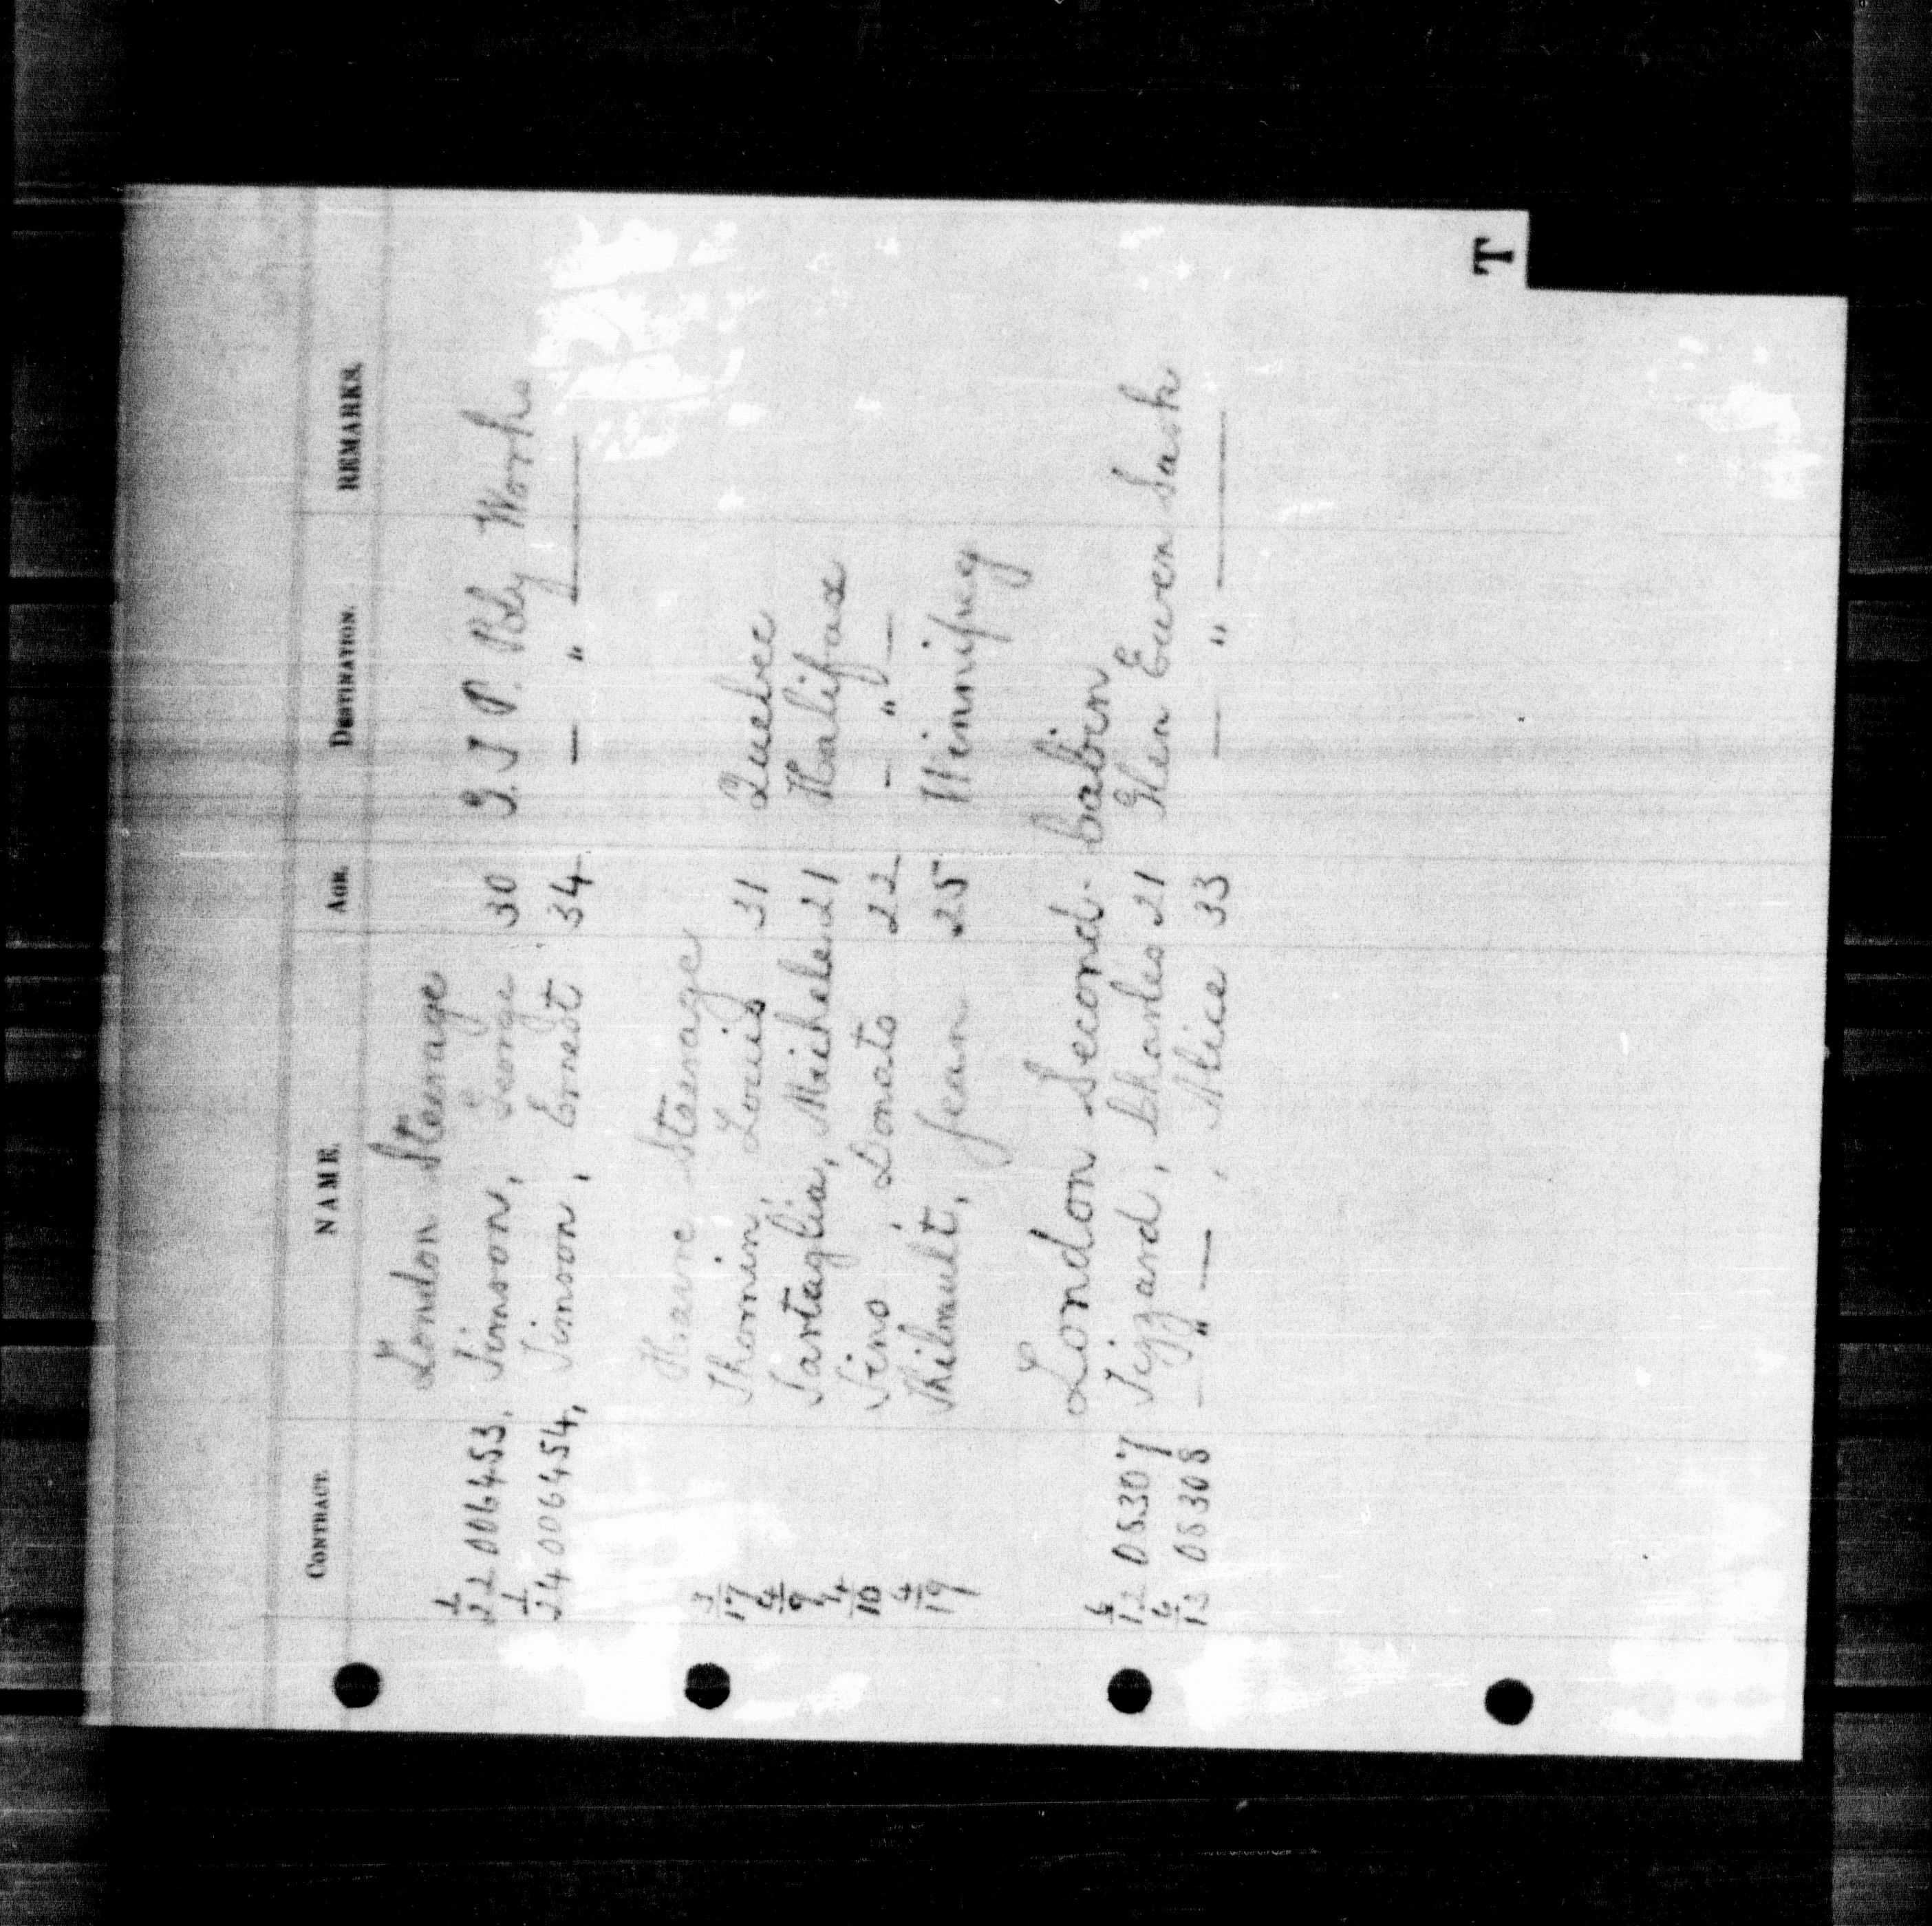 CONTRACT. NAME. AGE. DESTINATION. REMARKS.
London Steerage
1/22 006453, Timson, George 30 G. T P. Rly Works
1/24 006454, Timson, Ernest 34 — " —
Havre Steerage
3/17 Thomin, Louis 31 Quebec
4/9 Tartaglia, Michele 21 Halifax
4/10 Donato 22 — " —
4/19 Jean 25 Winnipeg
London Second Cabin
6/12 08307 Tizzard, Charles 21 Glen Ewen Sask
6/13 08308 — " — , Alice 33 — " —
T